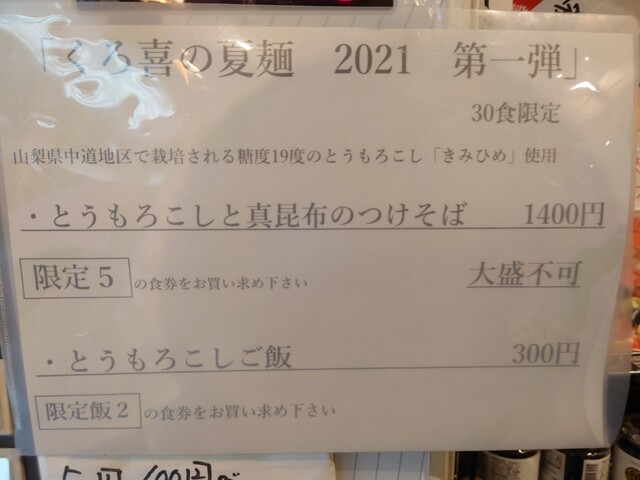 「くろ喜の夏麺 2021 第一弾」
30食限定
山梨県中道地区で栽培される糖度19度のとうもろこし「きみひめ」使用
・とうもろこしと真昆布のつけそば 1400円
限定5の食券をお買い求め下さい 大盛不可
・とうもろこしご飯 300円
限定飯2の食券をお買い求め下さい